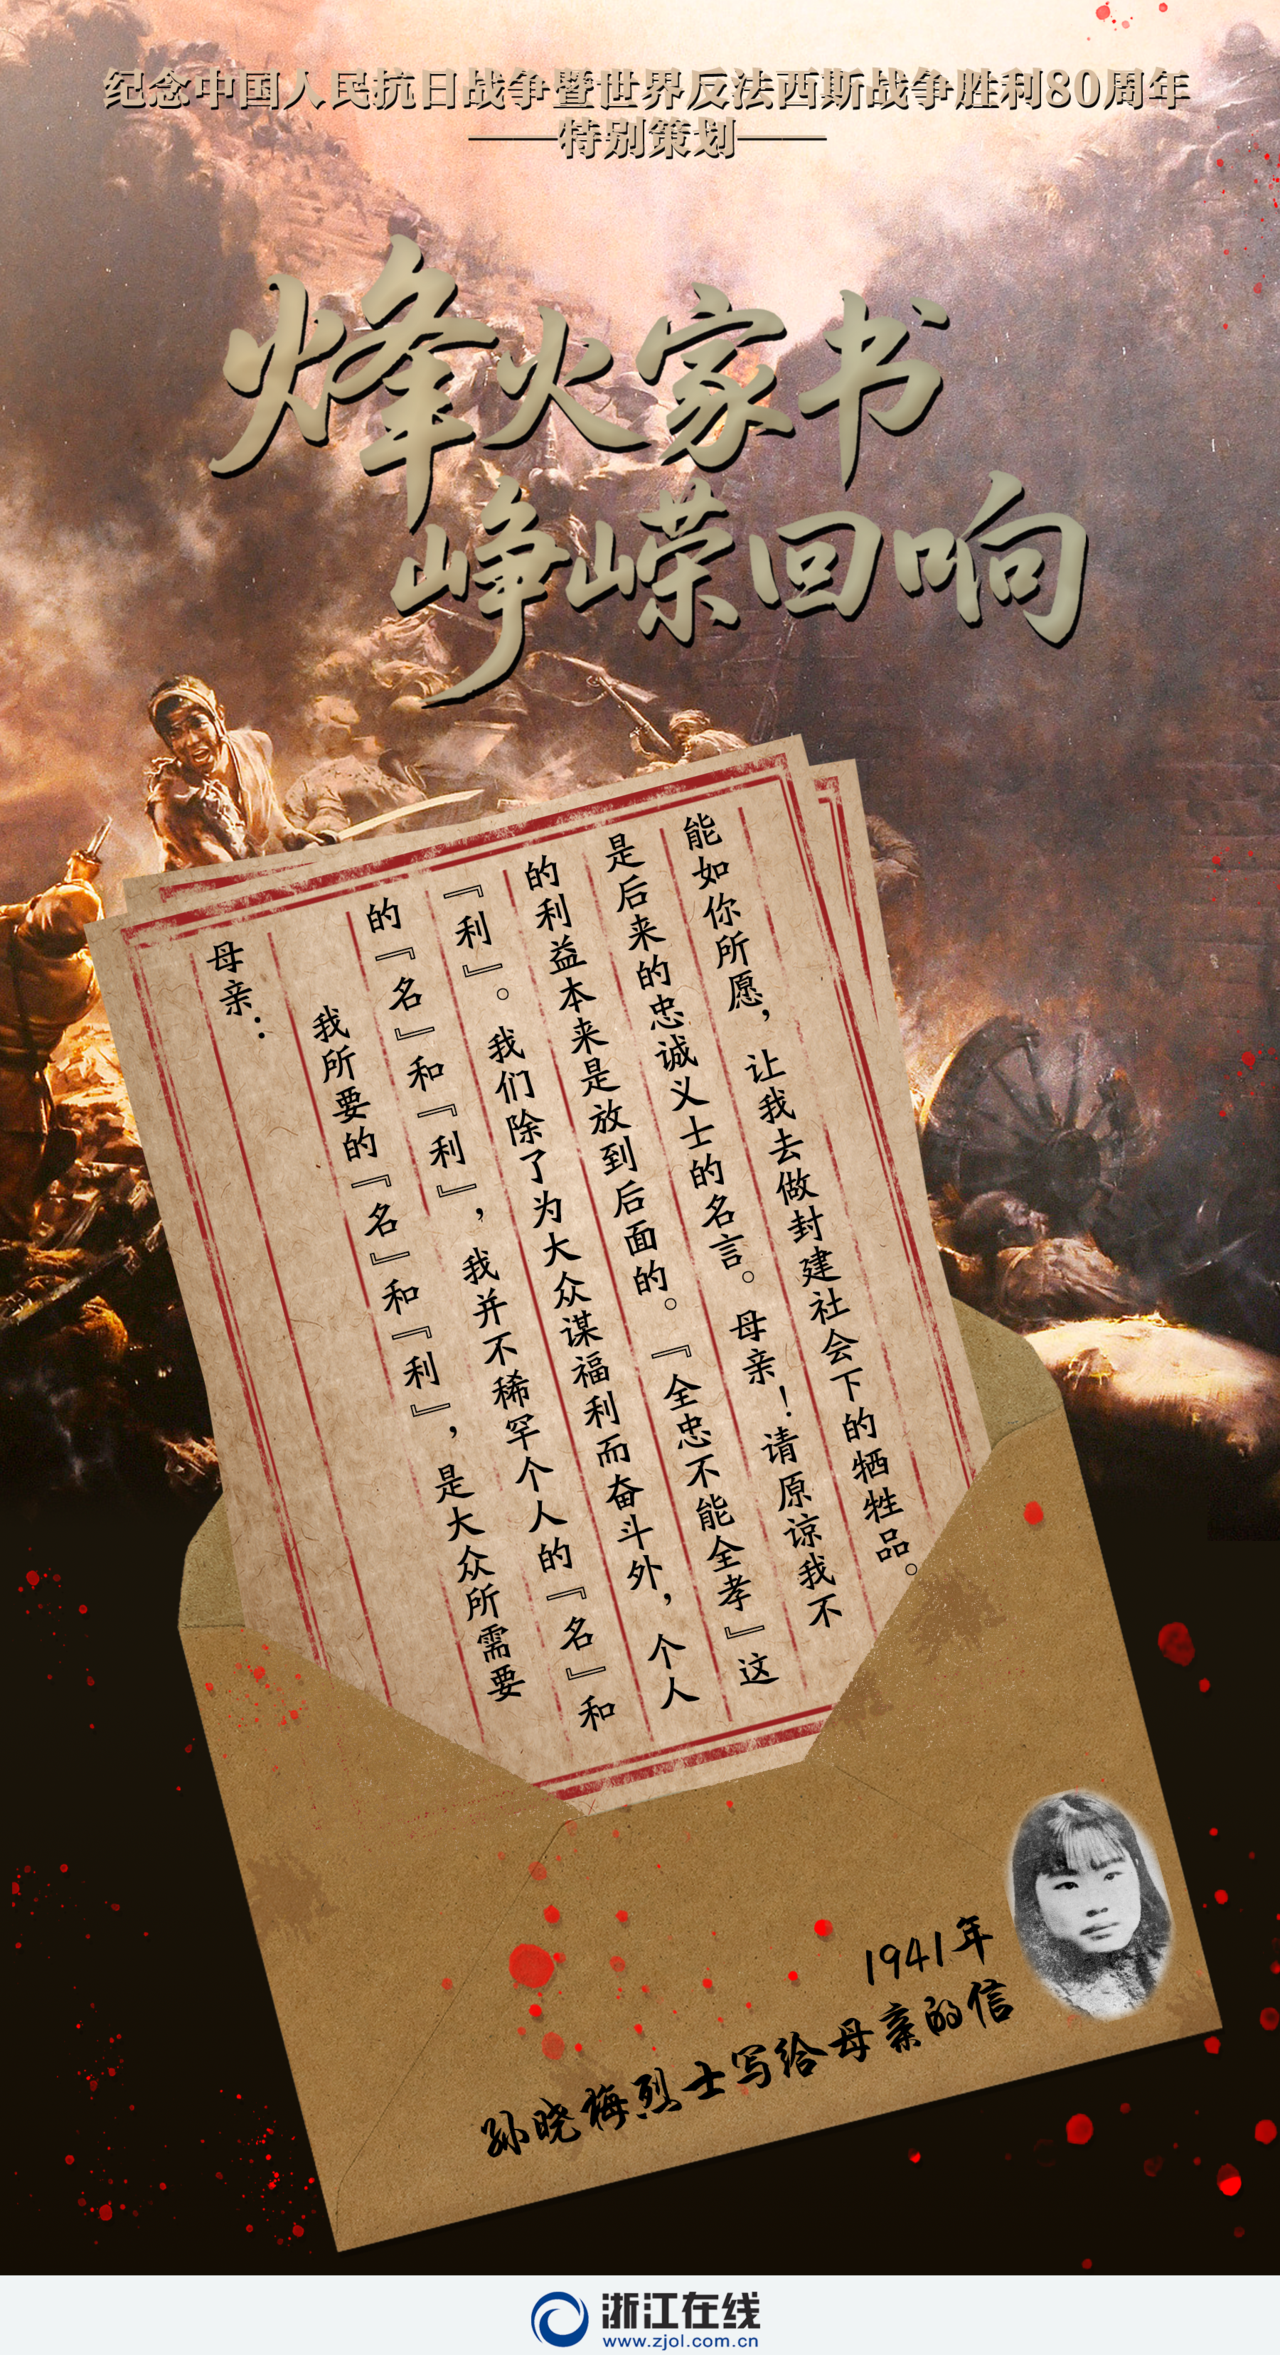 纪念中国人民抗日战争暨世界反法西斯战争胜利80周年
——特别策划——
烽火家书
峥嵘回响
母亲：
我所要的『名』和『利』，是大众所需要
的『名』和『利』，我并不稀罕个人的『名』和
『利』。我们除了为大众谋福利而奋斗外，个人
的利益本来是放到后面的。『全忠不能全孝』这
是后来的忠诚义士的名言。母亲！请原谅我不
能如你所愿，让我去做封建社会下的牺牲品。
1941年
孙晓梅烈士写给母亲的信
浙江在线
www.zjol.com.cn